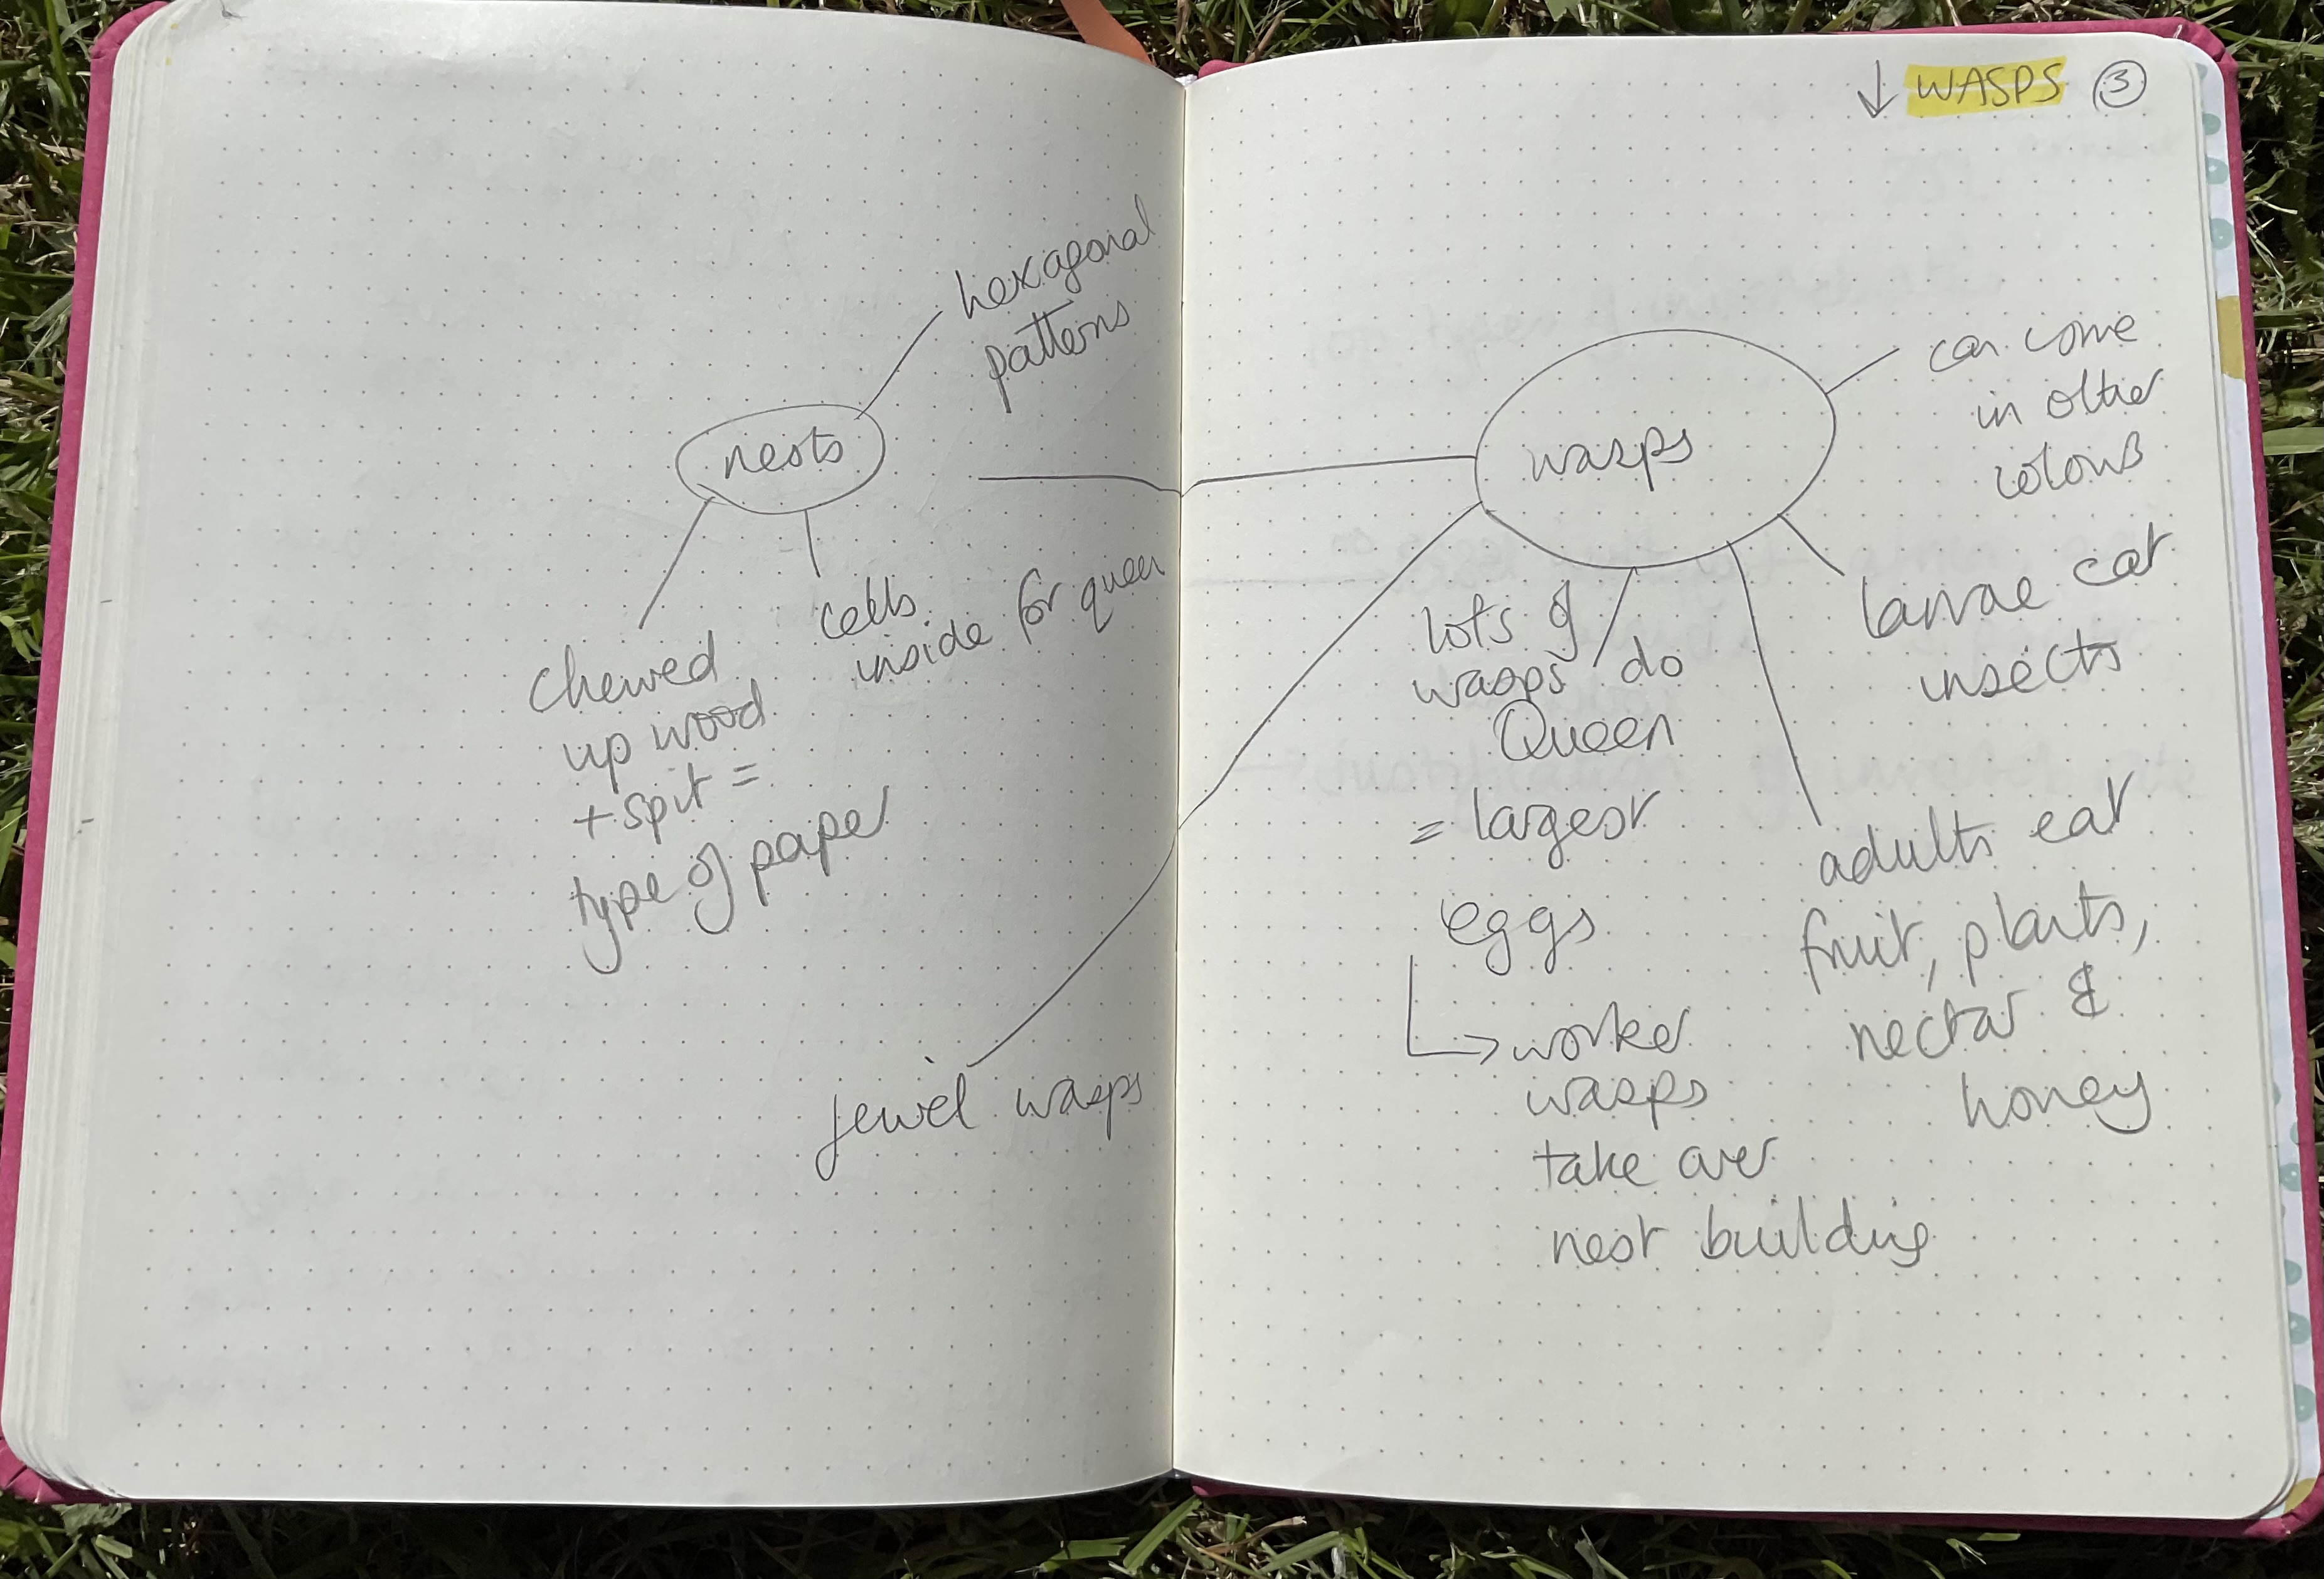 hexagonal
patterns
nests
cells
inside for queen
chewed
up wood
+ spit =
type of paper
jewel wasps
↓ WASPS ③
wasps
can come
in other
colours
larvae eat
insects
lots of
wasps do
Queen
= largest
eggs
→ worker
wasps
take over
nest building
adults eat
fruit, plants,
nectar &
honey